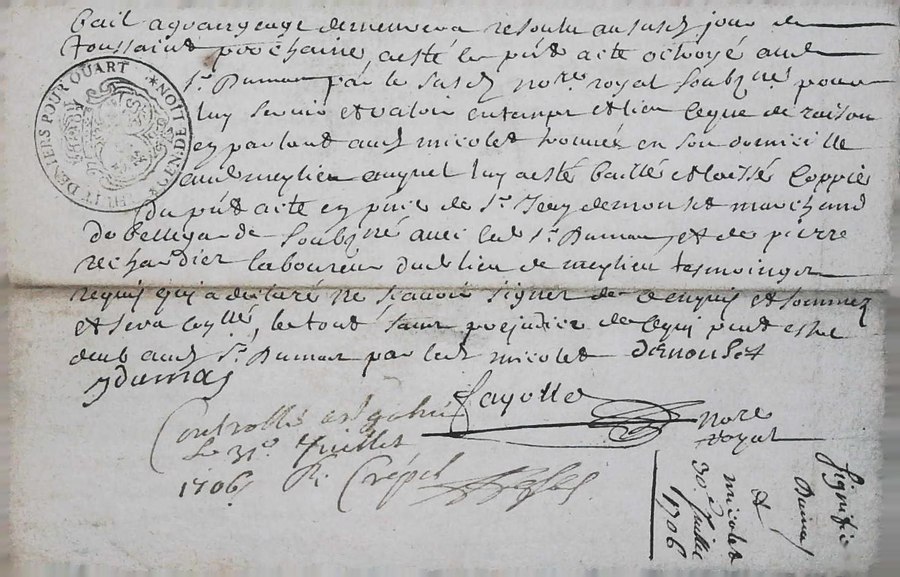 bail a grangeage demeurera resolu au susd jour de
toussaint prochaine, a esté le pnt acte octroyé aud
Sr Dumas par le susd nore royal soubzné pour
luy servir et valoir en temps et lieu ce que de raison
en parlant aud nicolet trouvé en son domicille
aud meylieu auquel luy a esté baillé et laissé coppie
du pnt acte en pnce de Sr Jery demonset marchand
de bellegarde soubzné avec led Sr Dumas et de pierre
rechandier laboureur dud lieu de meylieu tesmoings
requis qui a declaré ne scavoir signer de ce enquis et sommé
et sera cellé, le tout sans prejudice de ce qui peut estre
deub aud Sr Dumas par led nicolet demonset
Dumas
Fayolle
nore
royal
Controllé
Le 31e Juillet
1706 R. Crépet
Signifié
Dumas
A
nicolet
30e Juillet
1706
HUIT DENIERS POUR QUART * NOIT DENGEN